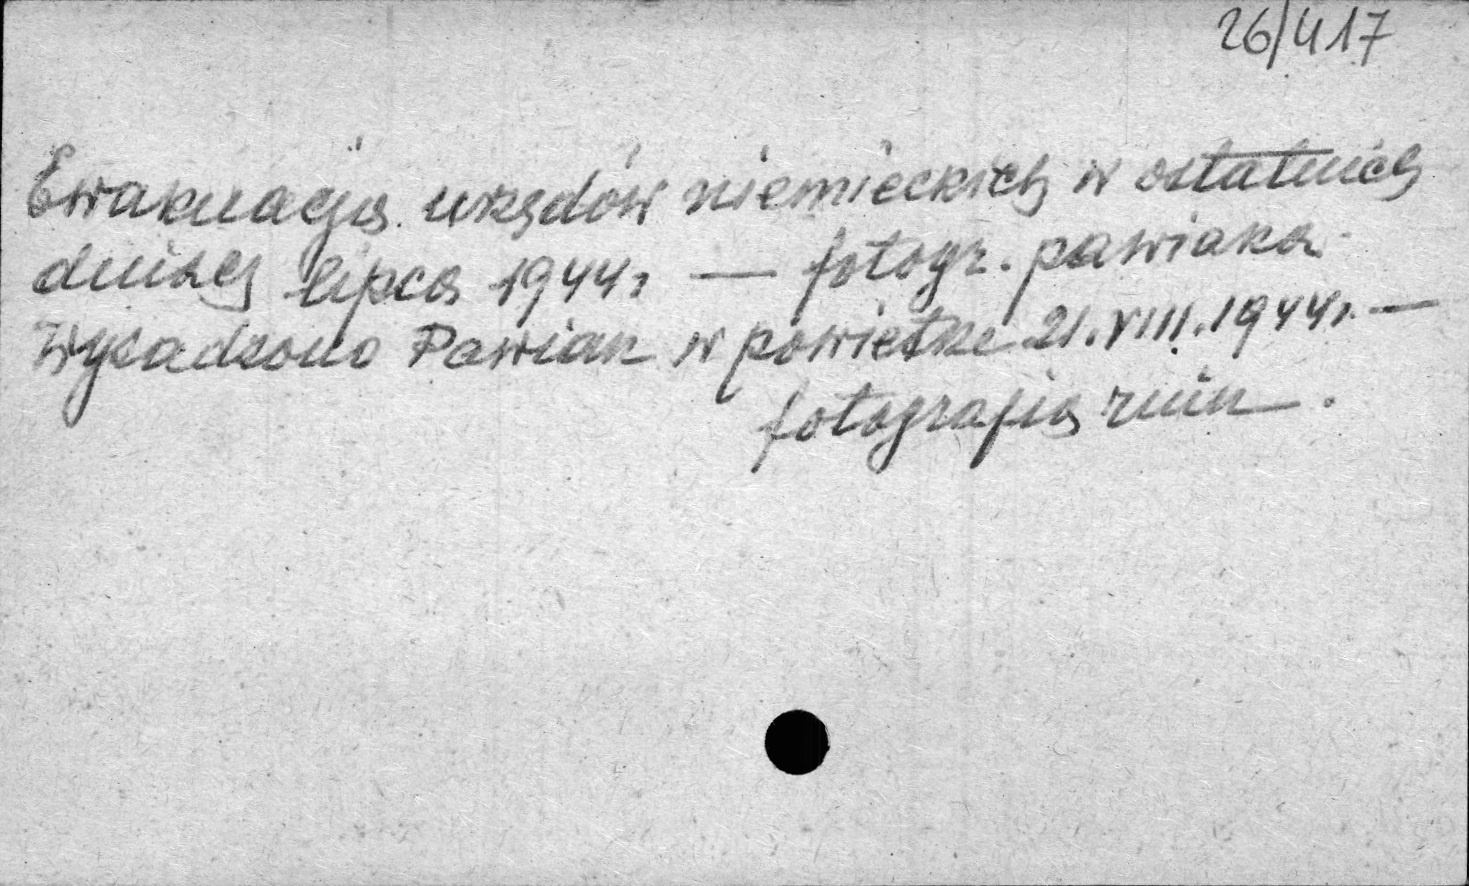 26/417
Ewakuacja urzędów niemieckich w ostatnich
dniach lipca 1944r — fotogr. pawiaka
Wysadzono Pawiak w powietrze 21.VIII.1944r. —
fotografia ruin.